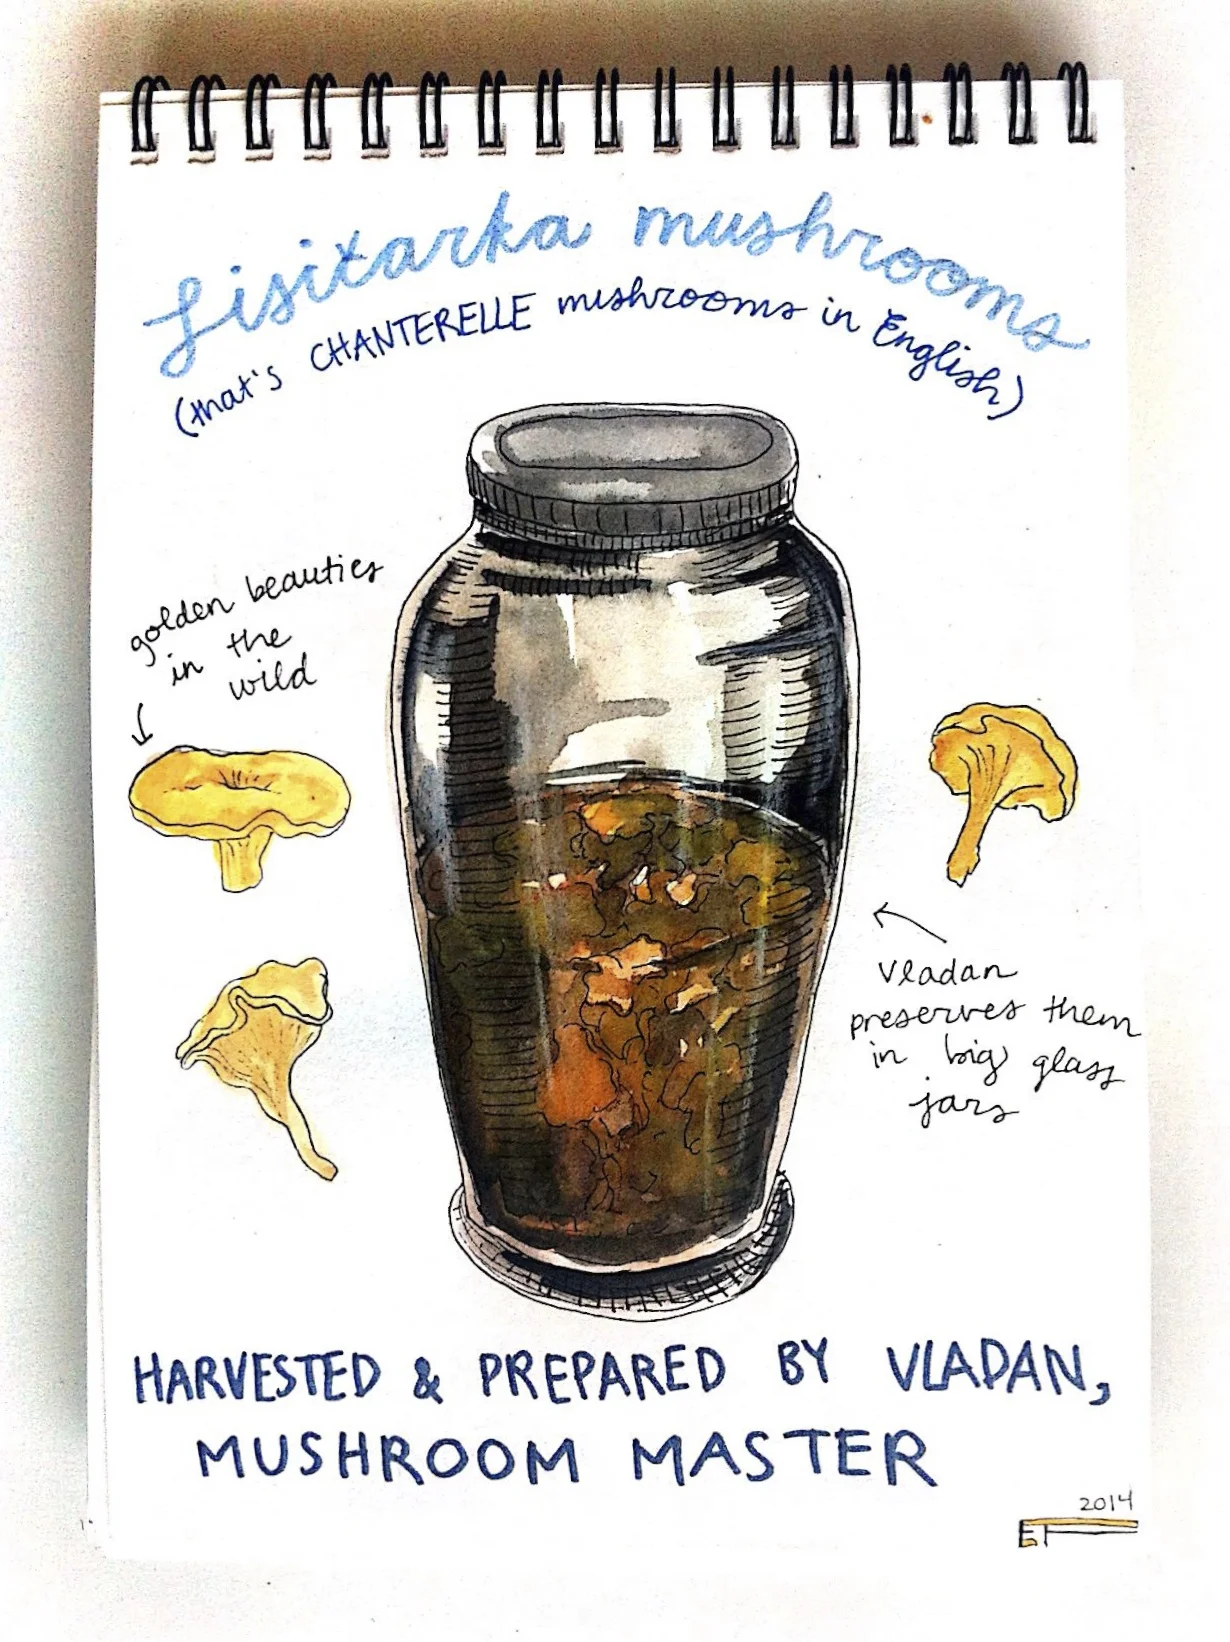 Lisitarka mushrooms
(that's CHANTERELLE mushrooms in English)
golden beauties
in the
wild
Vladan
preserves them
in big glass
jars
HARVESTED & PREPARED BY VLADAN,
MUSHROOM MASTER
2014
ET